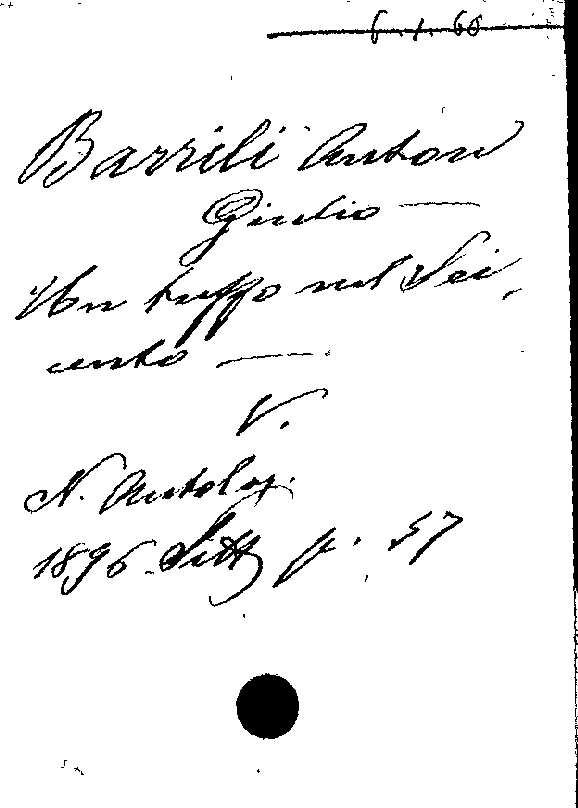 6.1.60
Barrili Anton
Giulio —
Un tuffo nel Sei,
cento —
V.
N. Antolog.
1896. Sett. p. 57